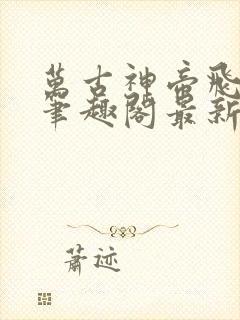 萬古神帝飛
筆趣閣最新
蕭迹